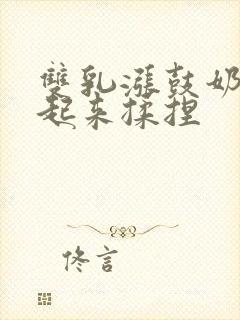 雙乳漲鼓奶
起来揉捏
佟言